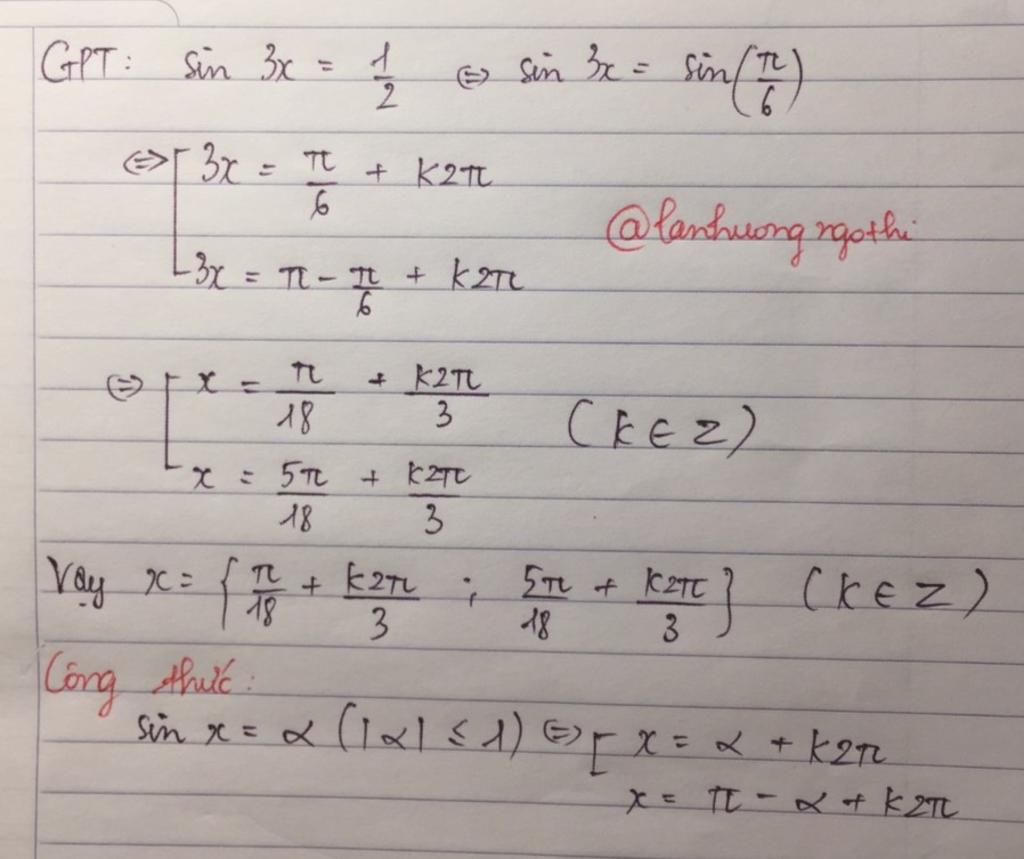 GPT: sin 3x = 1/2 ⇔ sin 3x = sin(π/6)
⇔ [ 3x = π/6 + k2π
@lanhuongngothi
3x = π - π/6 + k2π
⇔ [ x = π/18 + k2π/3
(k ∈ Z)
x = 5π/18 + k2π/3
Vậy x = { π/18 + k2π/3 ; 5π/18 + k2π/3 } (k ∈ Z)
Công thức:
sin x = α (|α| ≤ 1) ⇔ [ x = α + k2π
x = π - α + k2π